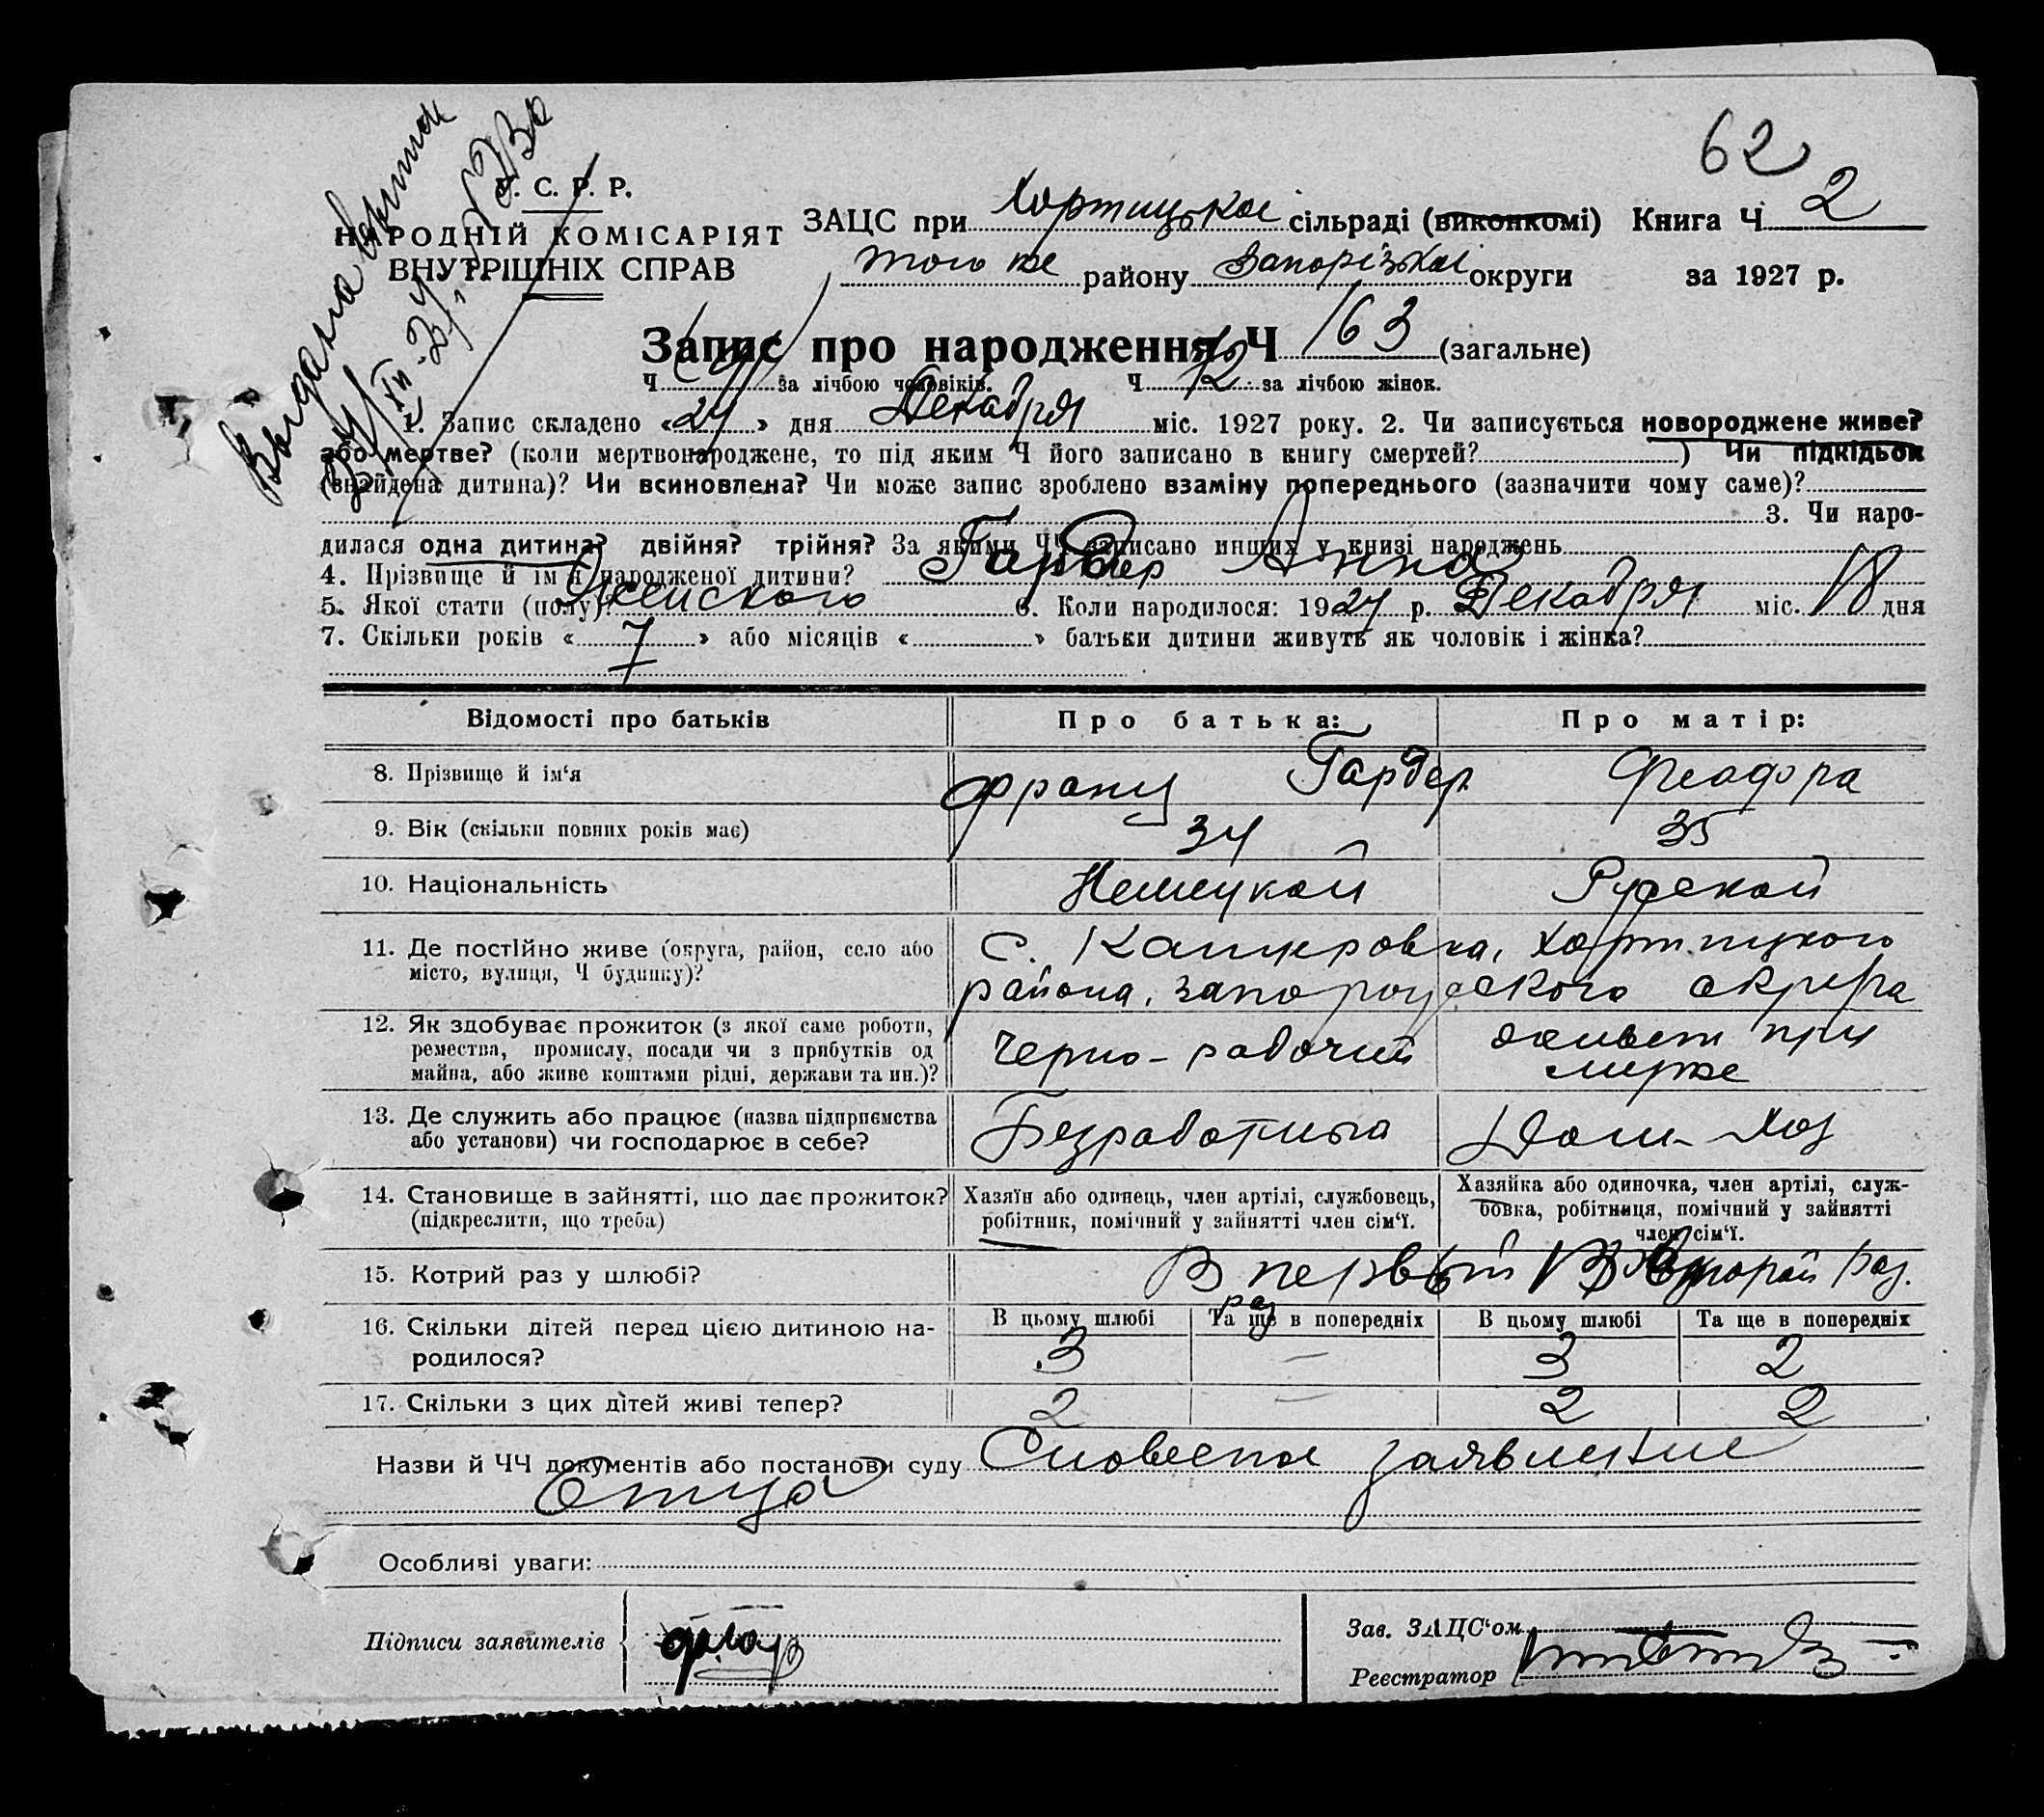 62
Выдана выпись
У. С. Р. Р.
НАРОДНІЙ КОМІСАРІЯТ
ВНУТРІШНІХ СПРАВ
ЗАЦС при Хортицької сільраді (виконкомі) Книга Ч 2
того же району Запорізької округи за 1927 р.
Запис про народження Ч 163 (загальне)
Ч за лічбою чоловіків. Ч 72 за лічбою жінок.
1. Запис складено «24» дня Декабря міс. 1927 року. 2. Чи записується новороджене живе?
або мертве? (коли мертвонароджене, то під яким Ч його записано в книгу смертей? ) Чи підкідьок
(знайдена дитина)? Чи всиновлена? Чи може запис зроблено взаміну попереднього (зазначити чому саме)?
3. Чи наро-
дилася одна дитина? двійня? трійня? За якими ЧЧ записано инших у книзі народжень
4. Прізвище й ім'я народженої дитини? Гардер Анна
5. Якої стати (полу)? Женского 6. Коли народилося: 1927 р. Декабря міс. 18 дня
7. Скільки років « 7 » або місяців « » батьки дитини живуть як чоловік і жінка?
Відомості про батьків Про батька: Про матір:
8. Прізвище й ім'я Франц Гардер Феодора
9. Вік (скільки повних років має) 34 35
10. Національність Немецкой Руской
11. Де постійно живе (округа, район, село або
місто, вулиця, Ч будинку)?
с. Капкровка, Хортицкого
района, Запорожского округа
12. Як здобуває прожиток (з якої саме роботи,
ремества, промислу, посади чи з прибутків од
майна, або живе коштами рідні, держави та ин.)?
Черно-рабочий
живет при
муже
13. Де служить або працює (назва підприємства
або установи) чи господарює в себе?
Безработный Дом-хоз
14. Становище в зайнятті, що дає прожиток?
(підкреслити, що треба)
Хазяїн або одинець, член артілі, службовець,
робітник, помічний у зайнятті член сім'ї.
Хазяйка або одиночка, член артілі, служ-
бовка, робітниця, помічний у зайнятті
член сім'ї.
15. Котрий раз у шлюбі? В первый раз Во второй раз.
16. Скільки дітей перед цією дитиною на-
родилося?
В цьому шлюбі Та ще в попередніх В цьому шлюбі Та ще в попередніх
3 — 3 2
17. Скільки з цих дітей живі тепер? 2 — 2 2
Назви й ЧЧ документів або постанови суду Словесное заявление
Отца
Особливі уваги:
Підписи заявителів
Зав. ЗАЦС'ом
Реєстратор